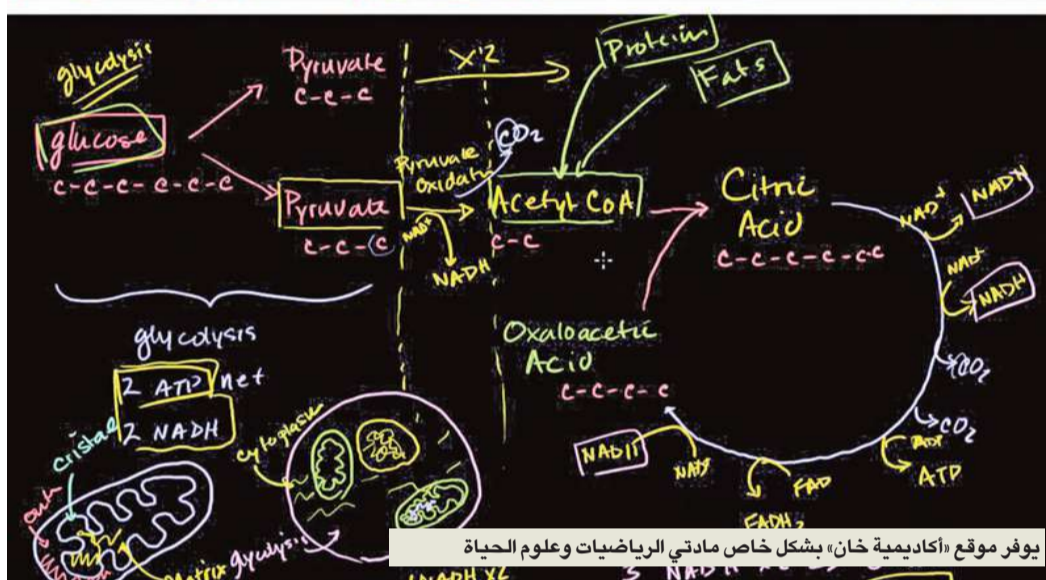 glycolysis
glucose
C-C-C-C-C-C
Pyruvate
C-C-C
X2
Pyruvate
C-C-C
Pyruvate
Oxidation
NAD+
NADH
CO2
Proteins
Fats
Acetyl CoA
C-C
Citric
Acid
C-C-C-C-C-C
Oxaloacetic
Acid
C-C-C-C
NAD+
NADH
NAD+
NADH
CO2
CO2
ADP
ATP
FAD
FADH2
NAD+
NADH
glycolysis
2 ATP net
2 NADH
cristae
Matrix
cytoplasm
glycolysis
يوفر موقع «أكاديمية خان» بشكل خاص مادتي الرياضيات وعلوم الحياة